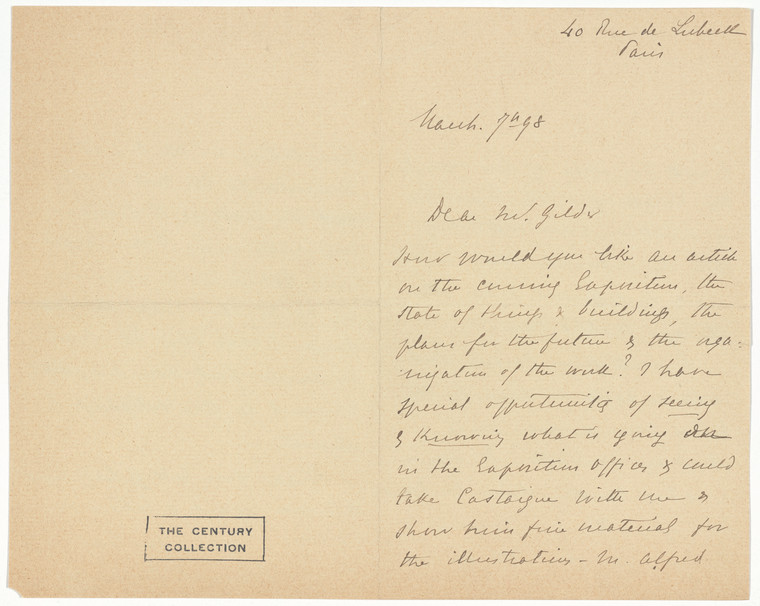 40 Rue de Lubeck
Paris
March. 7th 98
Dear Mr. Gilder
How would you like an article
on the coming Exposition, the
state of things & buildings, the
plans for the future & the orga=
nization of the work? I have
special opportunities of seeing
& Knowing what is going on
in the Exposition offices & could
take Castaigne with me &
show him fine material for
the illustrations - M. Alfred
THE CENTURY
COLLECTION